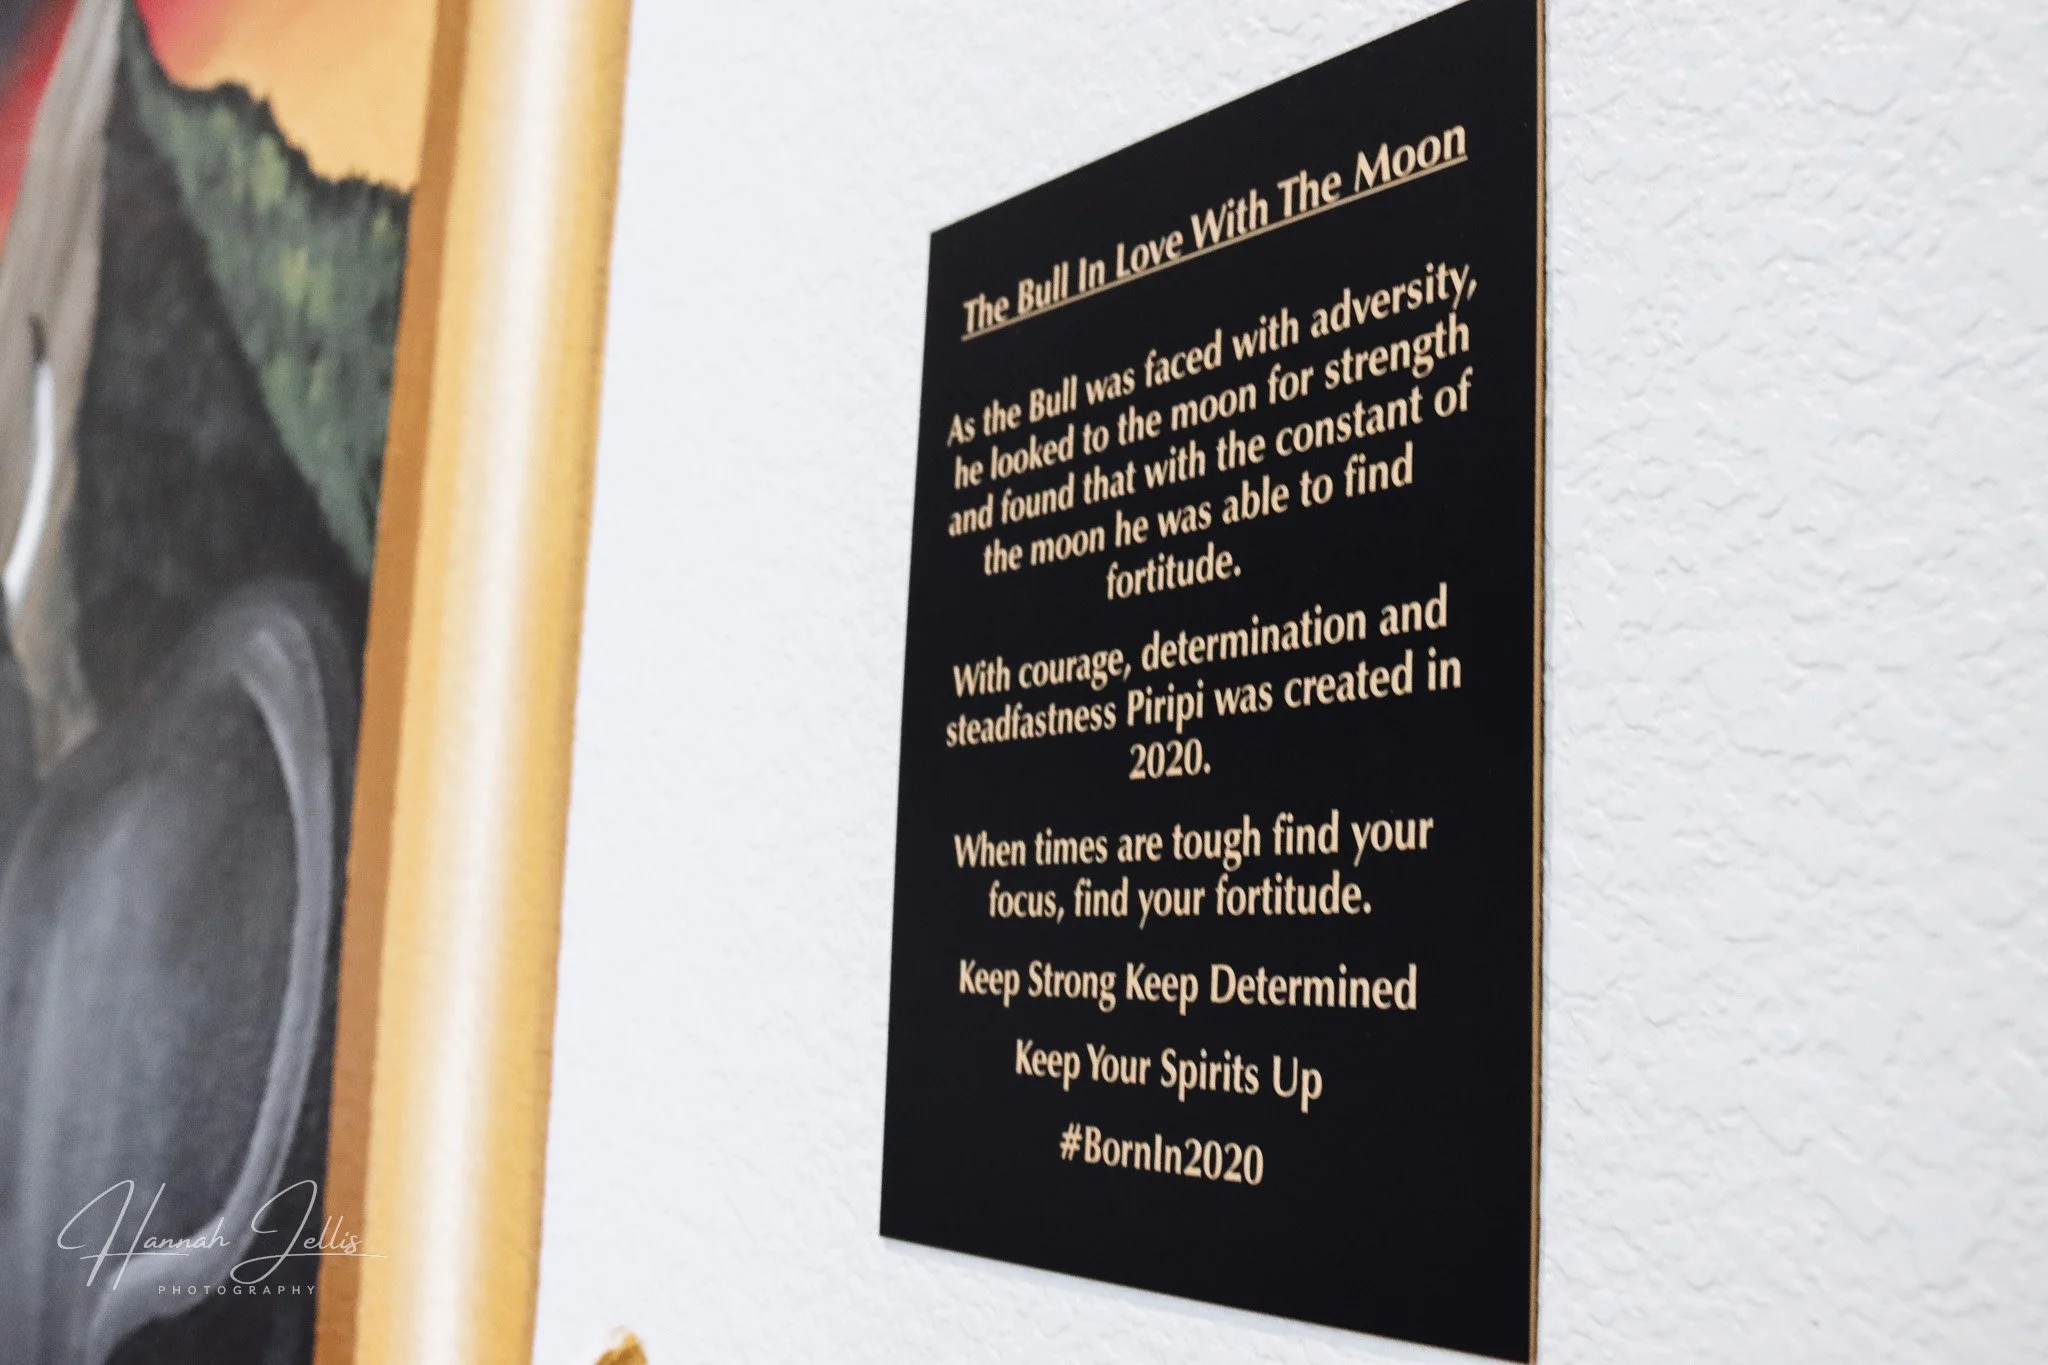 The Bull In Love With The Moon
As the Bull was faced with adversity,
he looked to the moon for strength
and found that with the constant of
the moon he was able to find
fortitude.
With courage, determination and
steadfastness Piripi was created in
2020.
When times are tough find your
focus, find your fortitude.
Keep Strong Keep Determined
Keep Your Spirits Up
#BornIn2020
Hannah Jellis
PHOTOGRAPHY